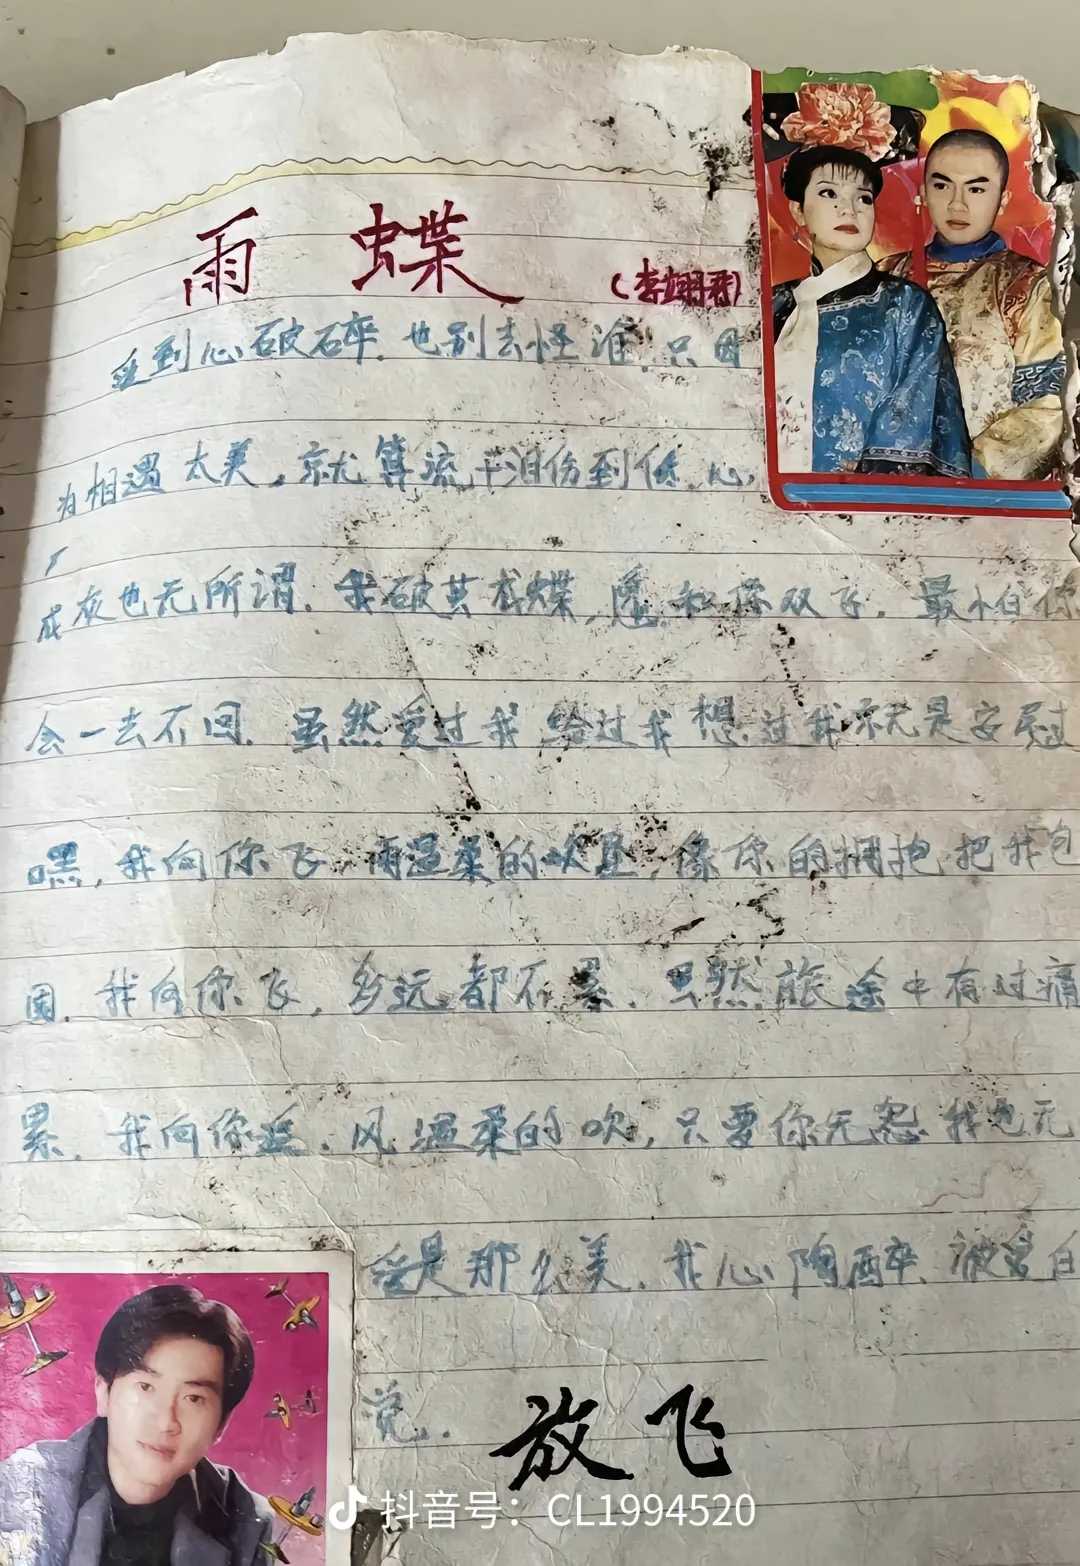 雨 蝶
(李翊君)
爱到心破碎.也别去怪谁.只因
为相遇太美,就算流干泪伤到底,心,
成灰也无所谓.我破茧成蝶,愿和你双飞,最怕你
会一去不回.虽然爱过我给过我想过我就是安慰过
嘿,我向你飞 雨温柔的坠,像你的拥抱把我包
围.我向你飞,多远都不累.虽然旅途中有过痛
累.我向你追.风温柔的吹,只要你无怨我也无
爱是那么美.我心陶醉.被
觉.
放飞
抖音号：CL1994520